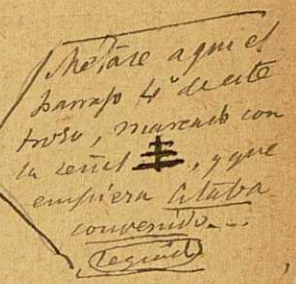 Métase aquí el
párrafo 4º de este
trozo, marcado con
la señal , y que
empieza Estaba
convenido...